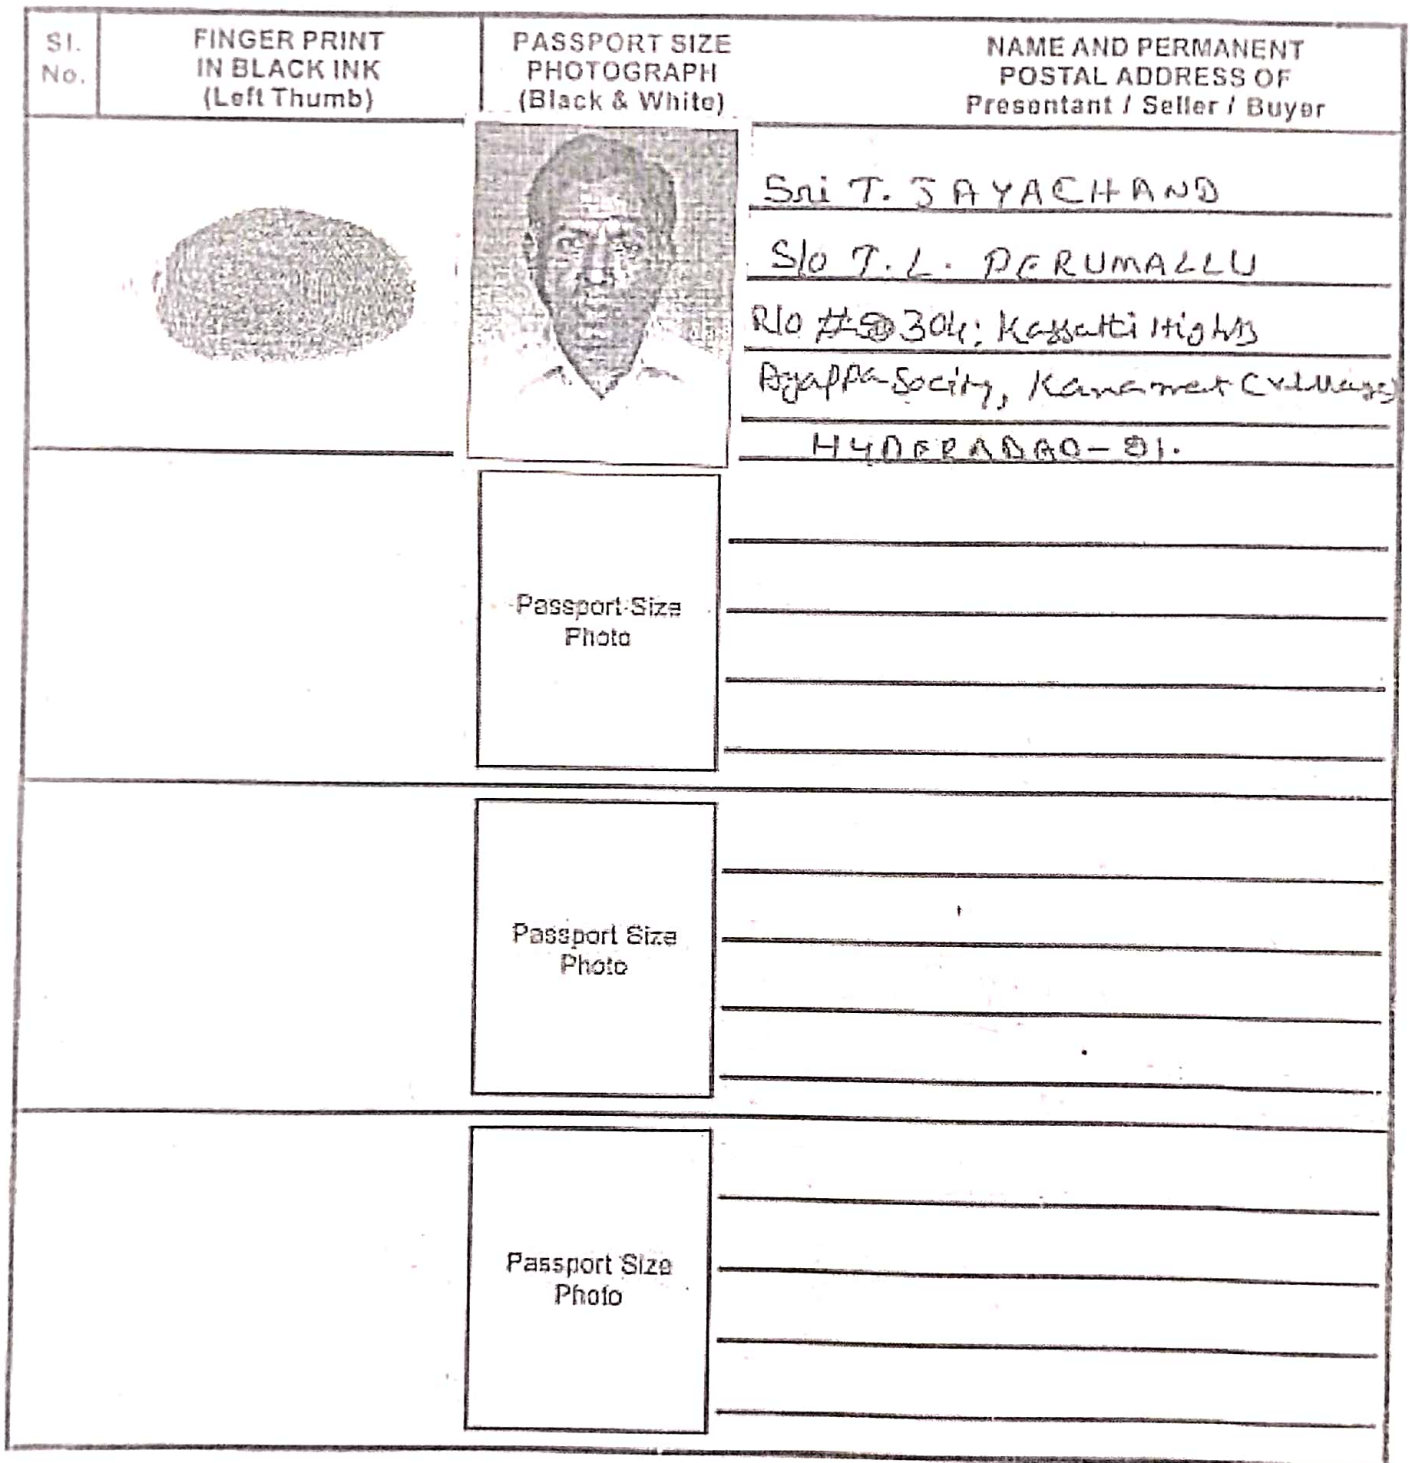 Sl.
No.
FINGER PRINT
IN BLACK INK
(Left Thumb)
PASSPORT SIZE
PHOTOGRAPH
(Black & White)
NAME AND PERMANENT
POSTAL ADDRESS OF
Presentant / Seller / Buyer
Sri T. JAYACHAND
S/o T. L. PERUMALLU
R/o # 304; Hights
Ayappa Socity, Kanamet (Village)
HYDERABAD - 81.
Passport Size
Photo
Passport Size
Photo
Passport Size
Photo